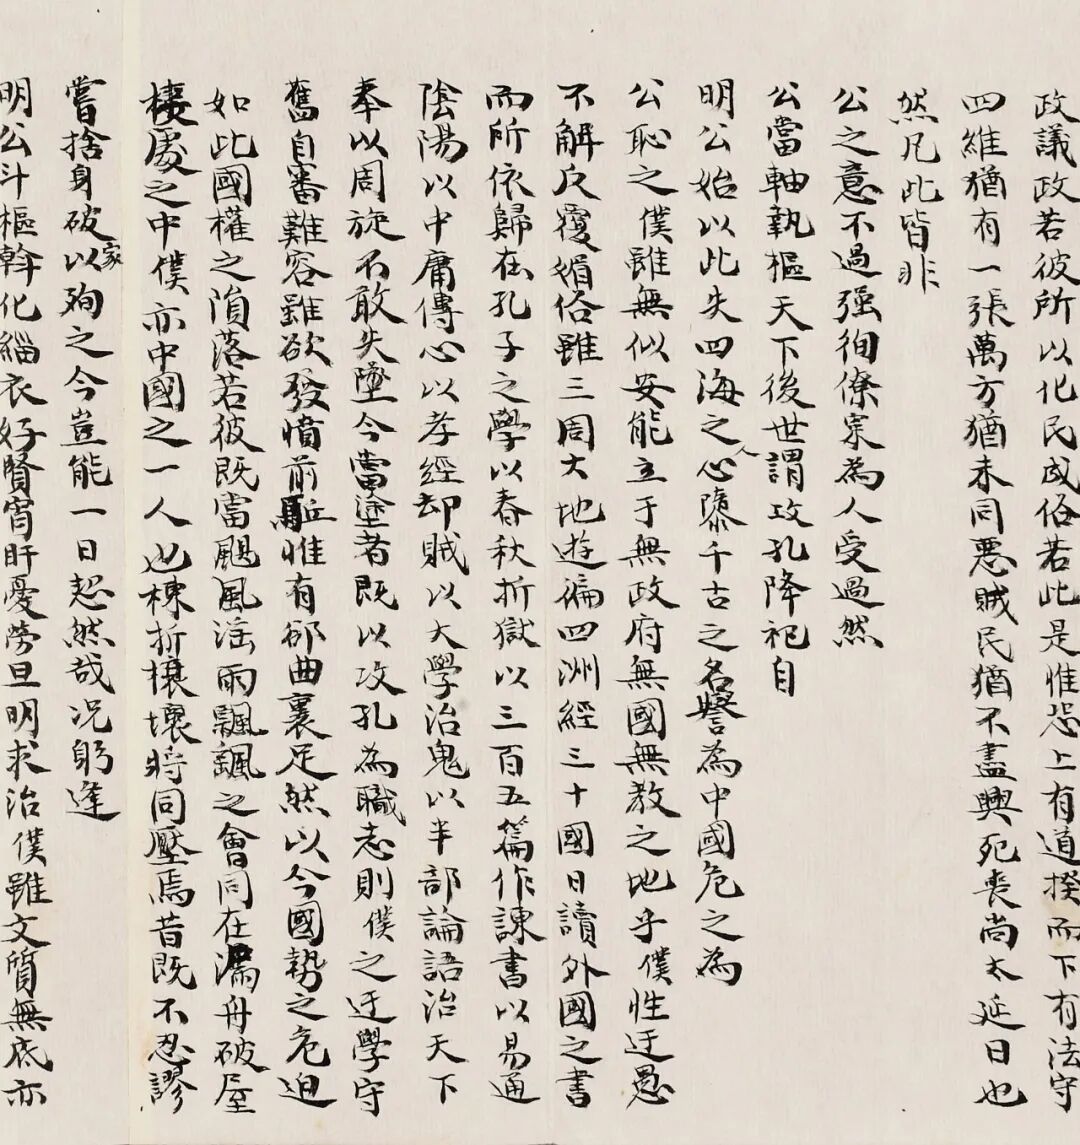 政議政若彼所以化民成俗若此是惟恐上有道揆而下有法守
四維猶有一張萬方猶未同惡賊民猶不盡興死喪尚太延日也
然凡此皆非
公之意不過強徇僚寀為人受過然
公當軸執樞天下後世謂攻孔降祀自
明公始以此失四海之人心隳千古之名譽為中國危之為
公恥之僕雖無似安能立于無政府無國無教之地乎僕性迂愚
不解反覆媚俗雖三周大地遊徧四洲經三十國日讀外國之書
而所依歸在孔子之學以春秋折獄以三百五篇作諫書以易通
陰陽以中庸傳心以孝經却賊以大學治鬼以半部論語治天下
奉以周旋不敢失墜今當塗者既以攻孔為職志則僕之迂學守
舊自審難容雖欲發憤前驅惟有郤曲裹足然以今國勢之危迫
如此國權之隕落若彼既當颶風滛雨飄颻之會同在漏舟破屋
棲處之中僕亦中國之一人也棟折榱壞將同壓焉昔既不忍謬
嘗捨身破家以殉之今豈能一日恝然哉况躬逢
明公斗樞斡化緇衣好賢宵旰憂勞旦明求治僕雖文質無底亦